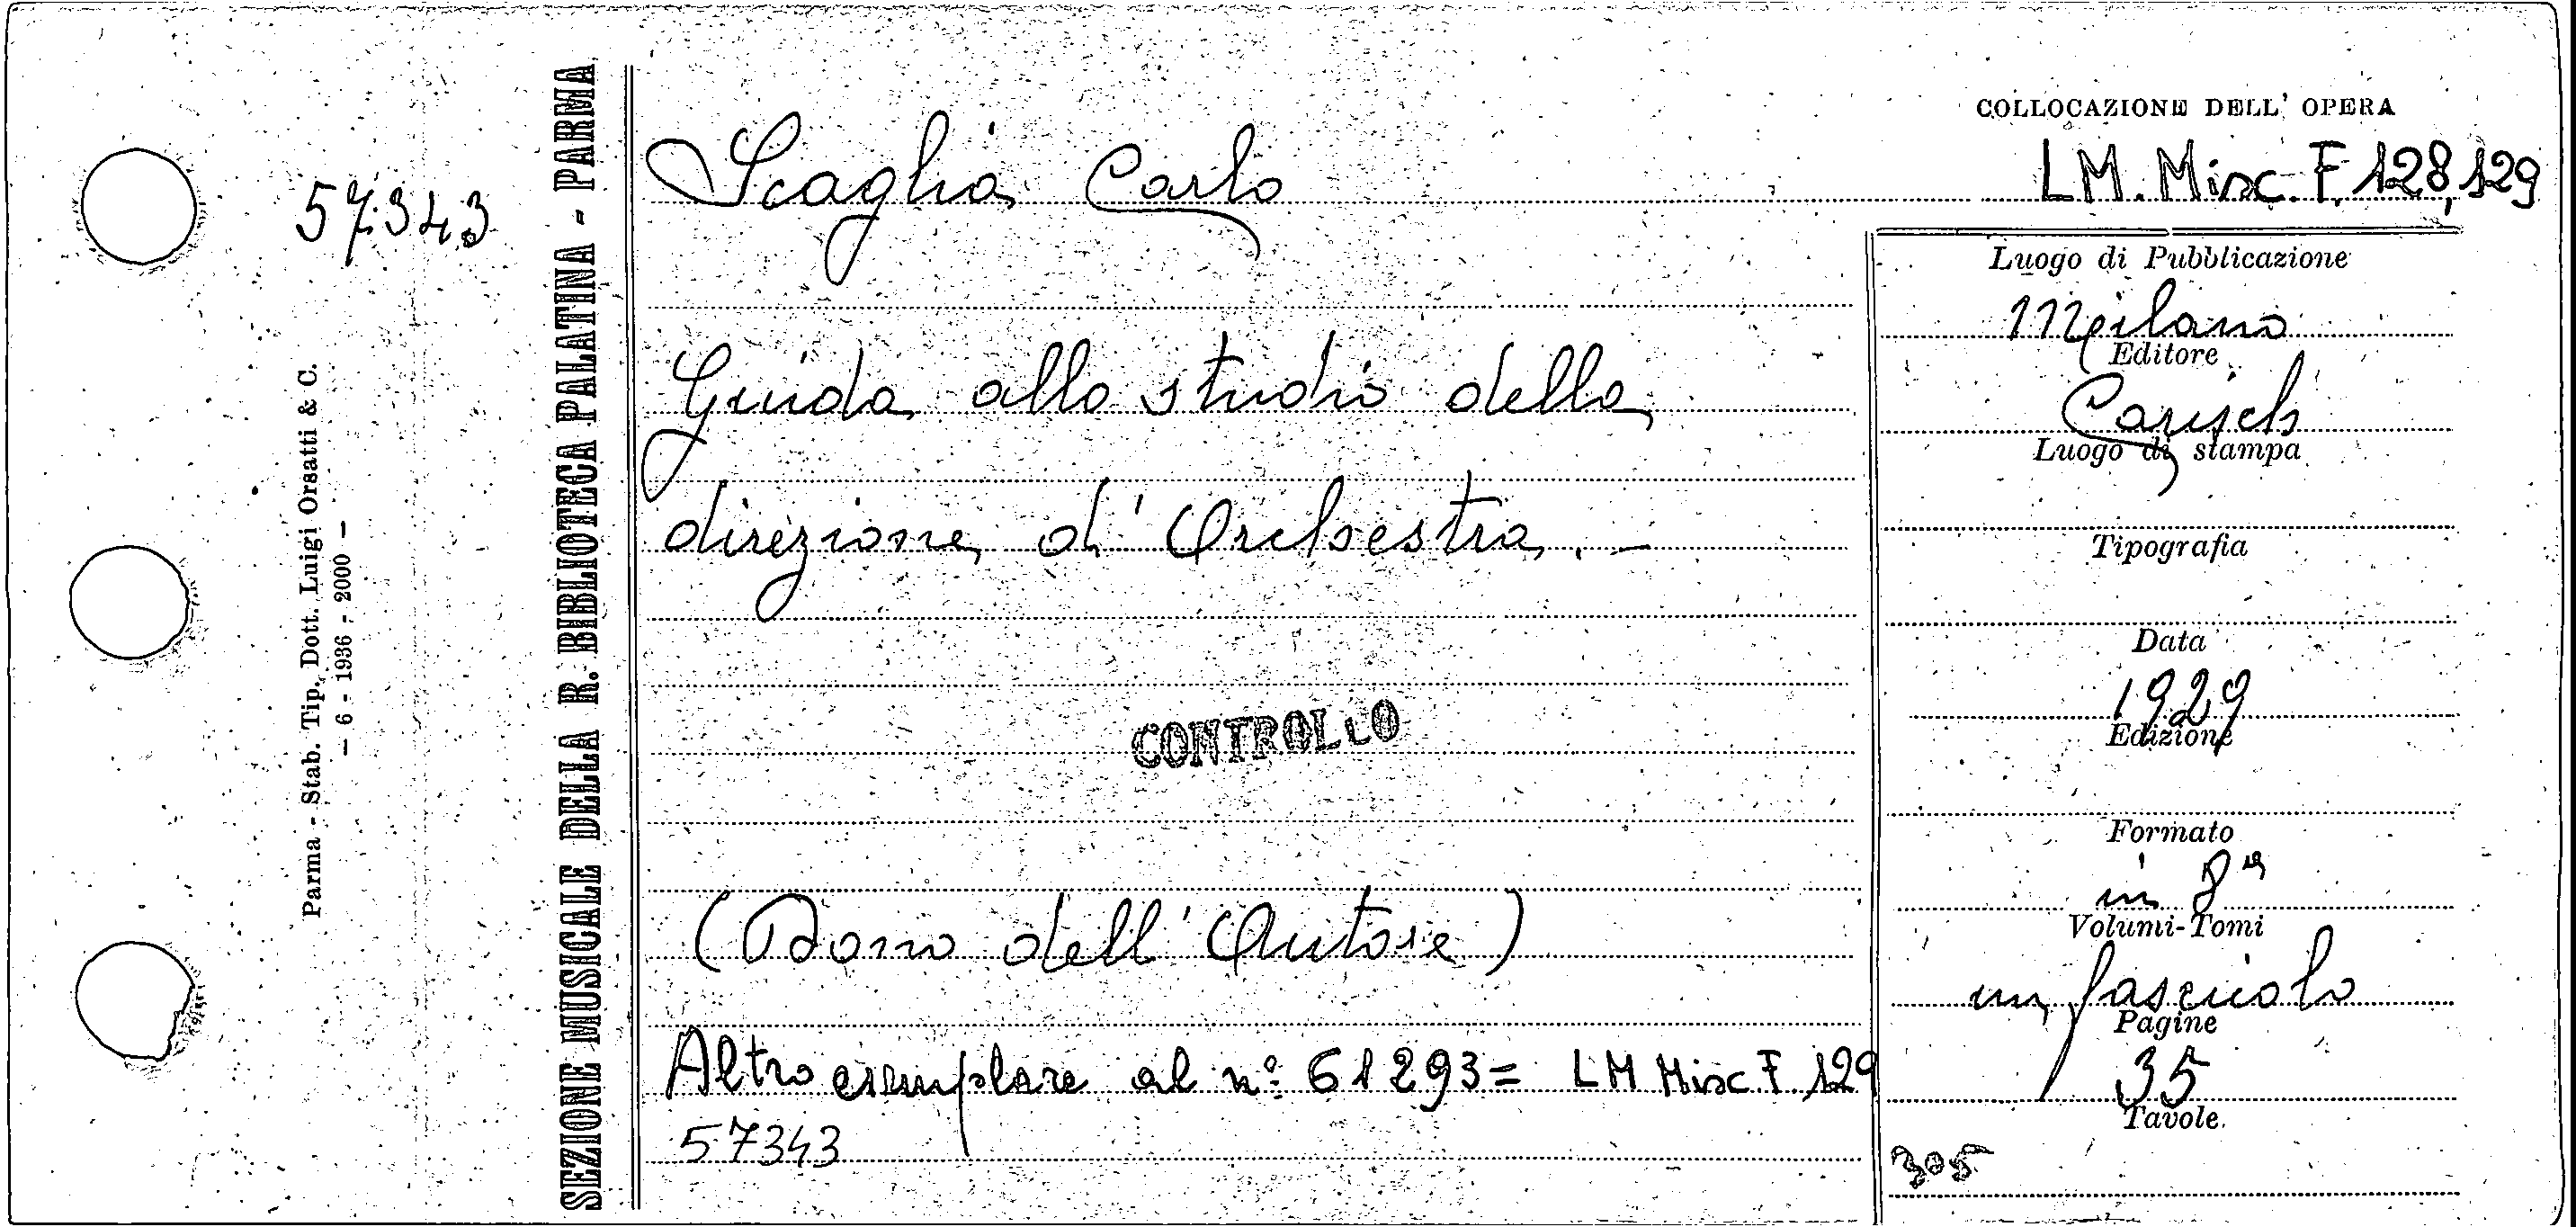 57343
Parma - Stab. Tip. Dott. Luigi Orsatti & C.
- 6 - 1936 - 2000 -
SEZIONE MUSICALE DELLA R. BIBLIOTECA PALATINA - PARMA
Scaglia Carlo
Guida allo studio della
direzione d'Orchestra. -
CONTROLLO
(Dono dell'Autore)
Altro esemplare al n° 61293= LM Misc F 129
57343
COLLOCAZIONE DELL' OPERA
LM. Misc. F. 128,129
Luogo di Pubblicazione
Milano
Editore
Carisch
Luogo di stampa
Tipografia
Data
1929
Edizione
Formato
in 8°
Volumi-Tomi
un fascicolo
Pagine
35
Tavole
305